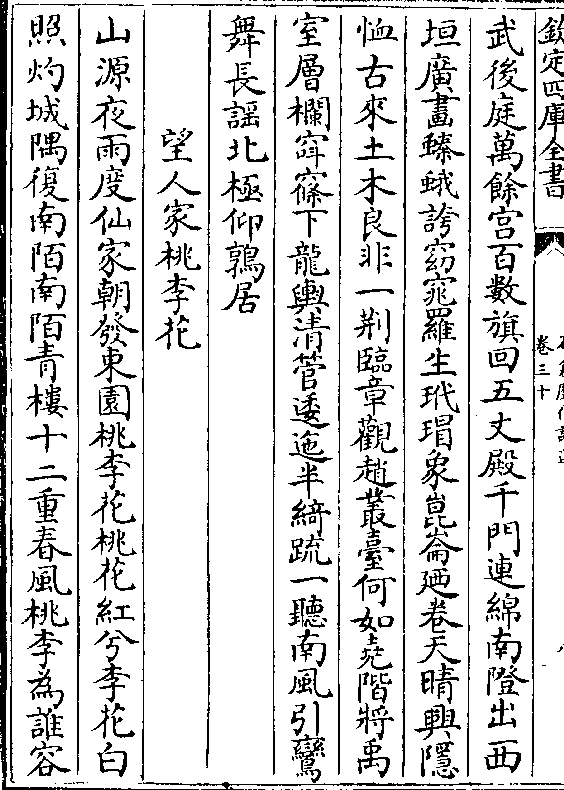 欽定四庫全書
卷三十
武後庭萬餘宫百數旗回五丈殿千門連綿南隥出西
垣廣畫螓蛾誇窈窕羅生玳瑁象崑崙廼卷天晴興隱
恤古來土木良非一荆臨章觀趙叢臺何如堯階將禹
室層欄窙窱下龍輿清管逶迤半綺疏一聽南風引鸞
舞長謡北極仰鶉居
望人家桃李花
山源夜雨度仙家朝發東園桃李花桃花紅兮李花白
照灼城隅復南陌南陌青樓十二重春風桃李為誰容